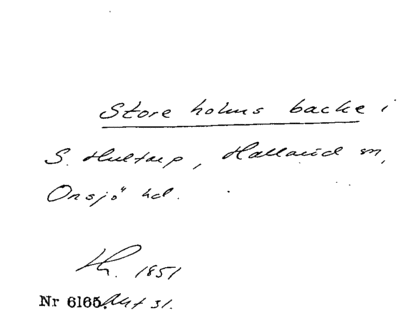 Store holms backe i
S. Hultarp, Halland m,
Onsjö hd.
Th. 1851
Nr 6165. Akt 31.